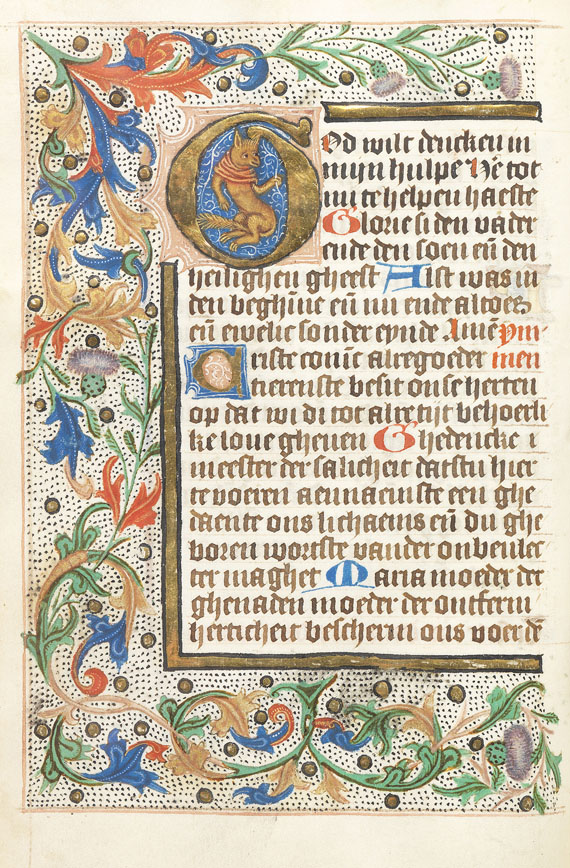 God wilt dencken in
mijn hulpe He tot
mi te helpen haeste
Glorie si den vader
ende den soen eñ den
heilighen gheest Alst was in
den beghiñe eñ nu ende altoes
eñ ewelic sonder eynde Amē ym
Criste coninc alregoeder men
tierenste besit onse herten
op dat wi di tot alre tijt behoerli
ke loue gheuen Ghedencke i
meester der salicheit datstu hier
te voeren aennaemste een ghe
daente ons lichaems eñ du ghe
boren wortste vander onbeulec
ter maghet Maria moeder der
ghenaden moeder der ontferm
herticheit bescherm ons voer dē